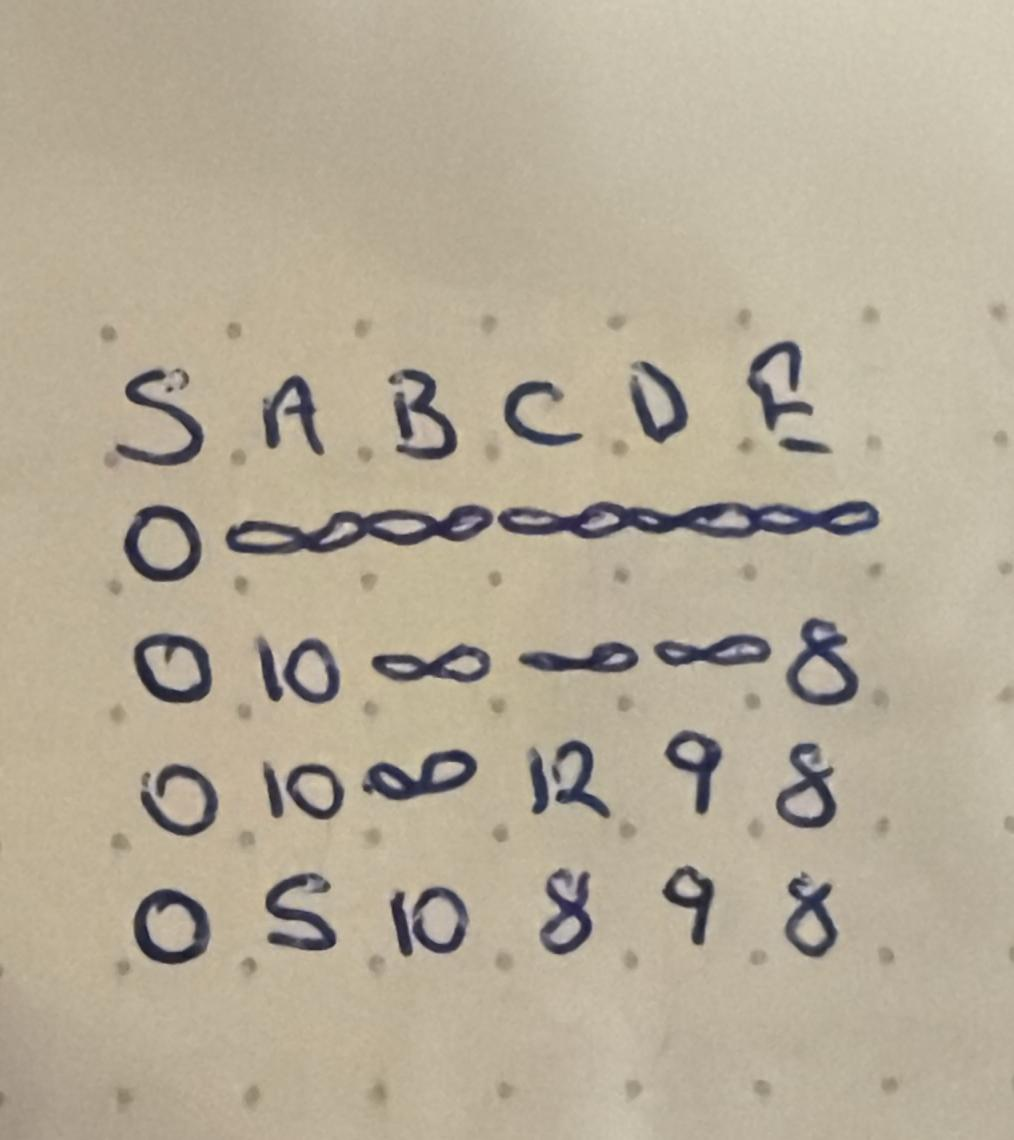 S A B C D E
0 ∞ ∞ ∞ ∞ ∞
0 10 ∞ ∞ ∞ 8
0 10 ∞ 12 9 8
0 5 10 8 9 8